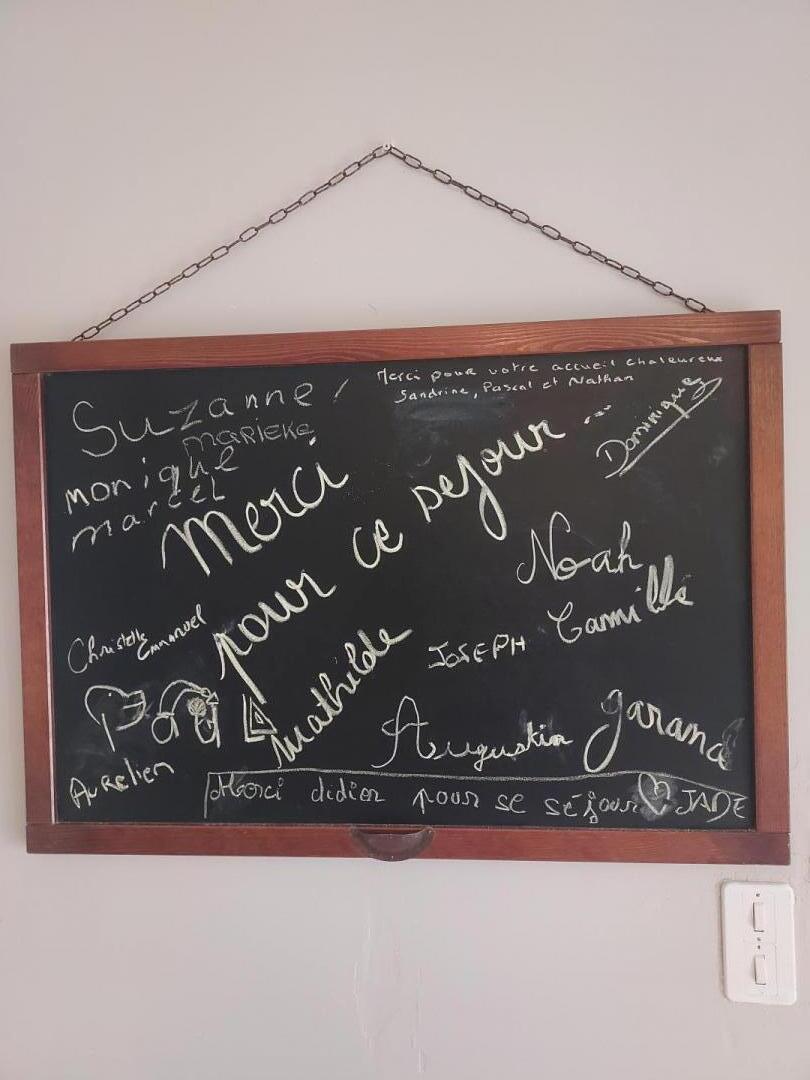 Merci pour votre accueil chaleureux
Sandrine, Pascal et Nathan
Suzanne !
Marieke
monique
marcel
Dominique
Merci
pour ce sejour ...
Noah
Camille
Christelle
Emmanuel
Mathilde
JOSEPH
Augustin
Aurelien
Merci didier pour se séjour JADE